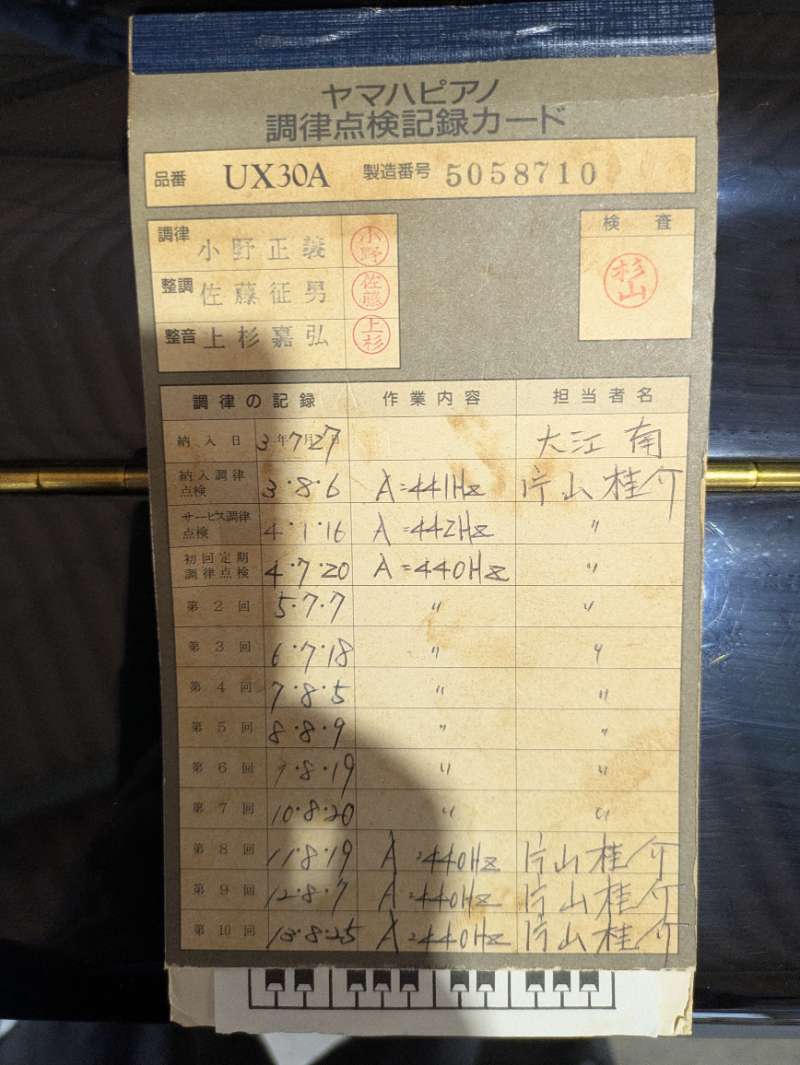 ヤマハピアノ
調律点検記録カード
品番 UX30A 製造番号 5058710
調律 小野正義 小野
整調 佐藤征男 佐藤
整音 上杉嘉弘 上杉
検査
杉山
調律の記録 作業内容 担当者名
納入日 3年7月27日 大江 南
納入調律点検 3・8・6 A=441Hz 片山桂介
サービス調律点検 4・1・16 A=442Hz 〃
初回定期調律点検 4・7・20 A=440Hz 〃
第2回 5・7・7 〃 〃
第3回 6・7・18 〃 〃
第4回 7・8・5 〃 〃
第5回 8・8・9 〃 〃
第6回 9・8・19 〃 〃
第7回 10・8・20 〃 〃
第8回 11・8・19 A=440Hz 片山桂介
第9回 12・8・7 A=440Hz 片山桂介
第10回 13・8・25 A=440Hz 片山桂介